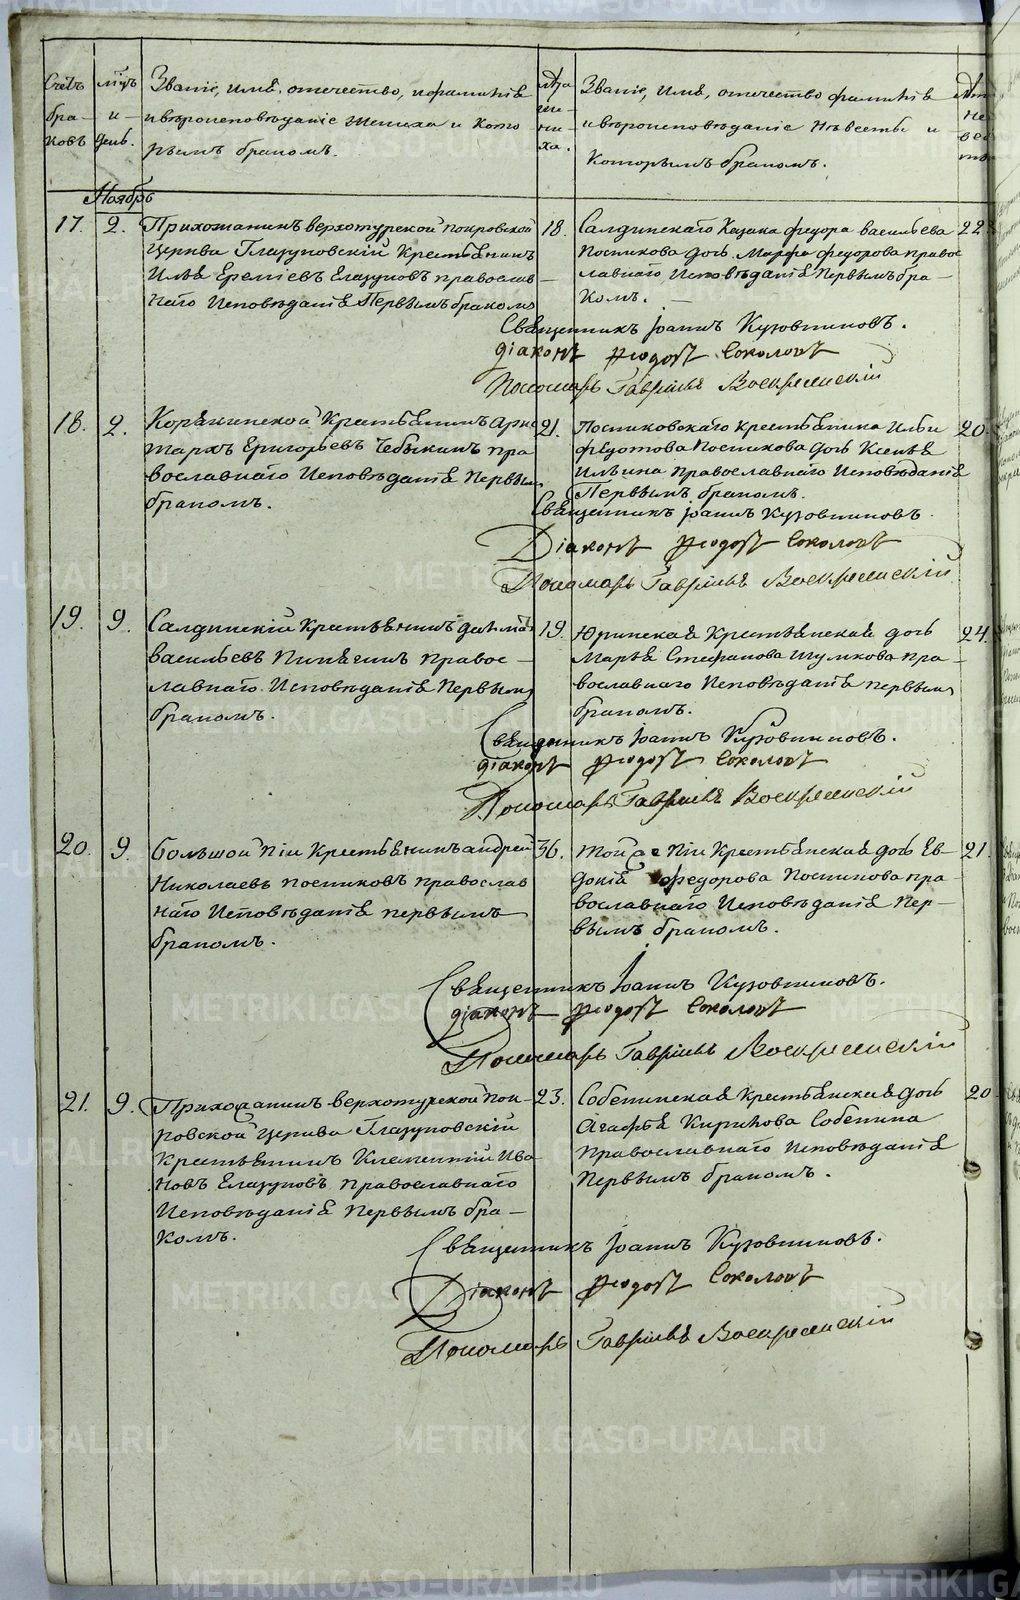 Счетъ бра- ковъ
мѣцъ и день.
Званіе, имѧ, отечество, и фамилія
и вѣроисповѣданіе жениха и кото
рымъ бракомъ.
лѣта же- ни- ха.
Званіе, имѧ, отечество фамиліѧ
и вѣроисповѣданіе Невѣсты и
Которымъ бракомъ.
Ноябрь
17. 2. Прихожанинъ верхотурской покровской
Церкви Глазуновскій Крестьѧнинъ
Илья Еремѣевъ Глазуновъ православ
наго Исповѣданіѧ Первымъ бракомъ
18. Салдинскаго Казака федора васильева
Постникова дочь Марфа федорова правос
лавнаго Исповѣданіѧ Первымъ бра-
комъ.
22
Свѧщенникъ Іоаннъ Кузовниковъ.
Діаконъ Ѳеодотъ Соколовъ
Пономарь Гавріилъ Воскресенскій
18. 2. Корѧкинской Крестьѧнинъ Арис
тархъ Григорьевъ Чебыкинъ пра
вославнаго Исповѣданіѧ Первым
бракомъ.
21. Постниковскаго крестьѧнина Ильи
федотова Постникова дочь Ксеніѧ
Ильина православнаго Исповѣданіѧ
Первымъ бракомъ.
20.
Свѧщенникъ Іоаннъ Кузовниковъ
Діаконъ Ѳеодотъ Соколовъ
Пономарь Гавріилъ Воскресенскій
19. 9. Салдинскій Крестьѧнинъ Далматъ
васильевъ Пинѧгинъ Правос-
лавнаго Исповѣданіѧ Первым
бракомъ.
19. Юринскаѧ Крестьѧнскаѧ дочь
Марьѧ Стефанова Шумкова пра-
вославнаго Исповѣданіѧ первым
бракомъ.
24.
Свѧщенникъ Іоаннъ Кузовниковъ.
Діаконъ Ѳеодотъ Соколовъ
Пономарь Гавріилъ Воскресенскій
20. 9. Большой Піи Крестьѧнинъ андрей
Николаевъ Постниковъ православ
наго Исповѣданіѧ первымъ
бракомъ.
36. Той же Піи Крестьѧнскаѧ дочь Ев-
докіѧ федорова Постникова пра-
вославнаго Исповѣданіѧ Пер-
вымъ бракомъ.
21.
Свѧщенникъ Іоаннъ Кузовниковъ.
Діаконъ Ѳеодотъ Соколовъ
Пономарь Гавріилъ Воскресенскій
21. 9. Прихожанинъ верхотурской Пок-
ровской Церкви Глазуновскій
Крестьѧнинъ Клементій Ива
новъ Глазуновъ Православнаго
Исповѣданіѧ Первымъ бра-
комъ.
23. Собенинскаѧ Крестьѧнскаѧ дочь
Агафьѧ Кирилова Собенина
Православнаго Исповѣданіѧ
Первымъ бракомъ.
20
Свѧщенникъ Іоаннъ Кузовниковъ.
Діаконъ Ѳеодотъ Соколовъ
Пономарь Гавріилъ Воскресенскій
METRIKI.GASO-URAL.RU